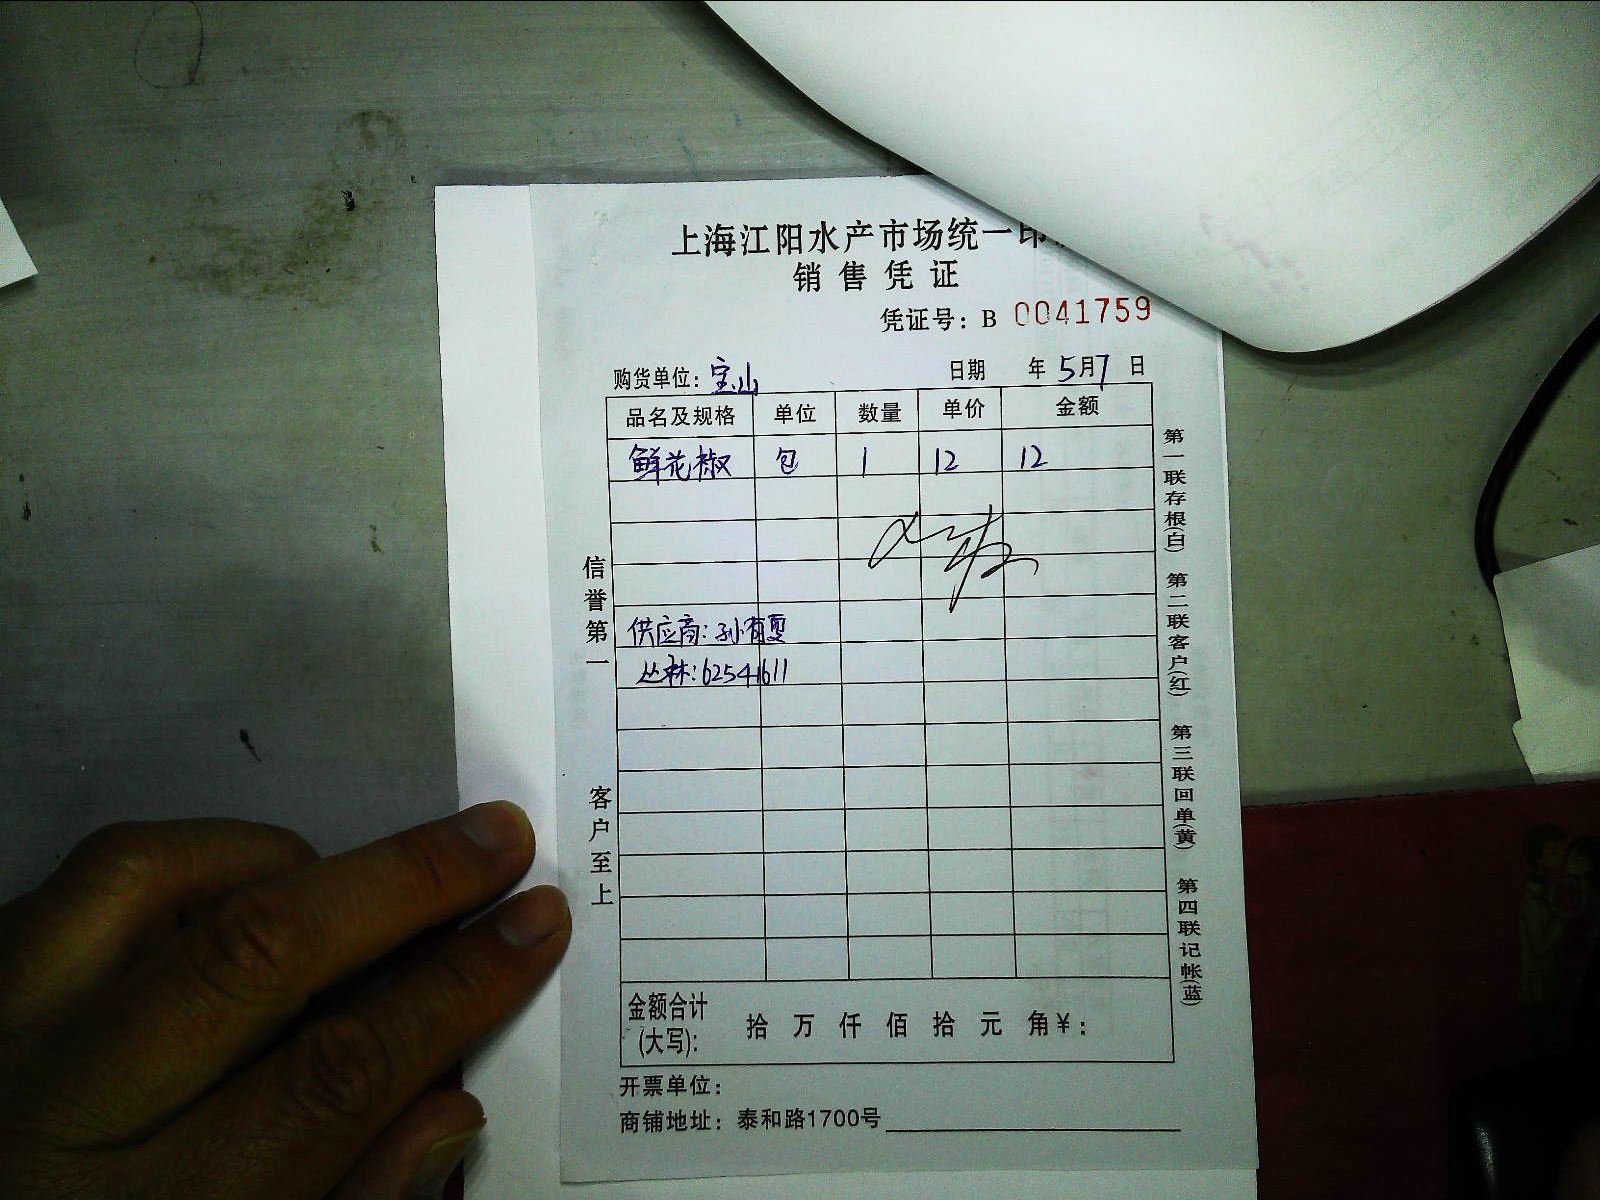 上海江阳水产市场统一印
销售凭证
凭证号：B 0041759
购货单位：宝山 日期 年5月7日
品名及规格 单位 数量 单价 金额
鲜花椒 包 1 12 12
供应商：孙有夏
丛林：62541611
金额合计(大写)： 拾 万 仟 佰 拾 元 角 ¥：
开票单位：
商铺地址：泰和路1700号
信誉第一 客户至上
第一联存根(白) 第二联客户(红) 第三联回单(黄) 第四联记帐(蓝)